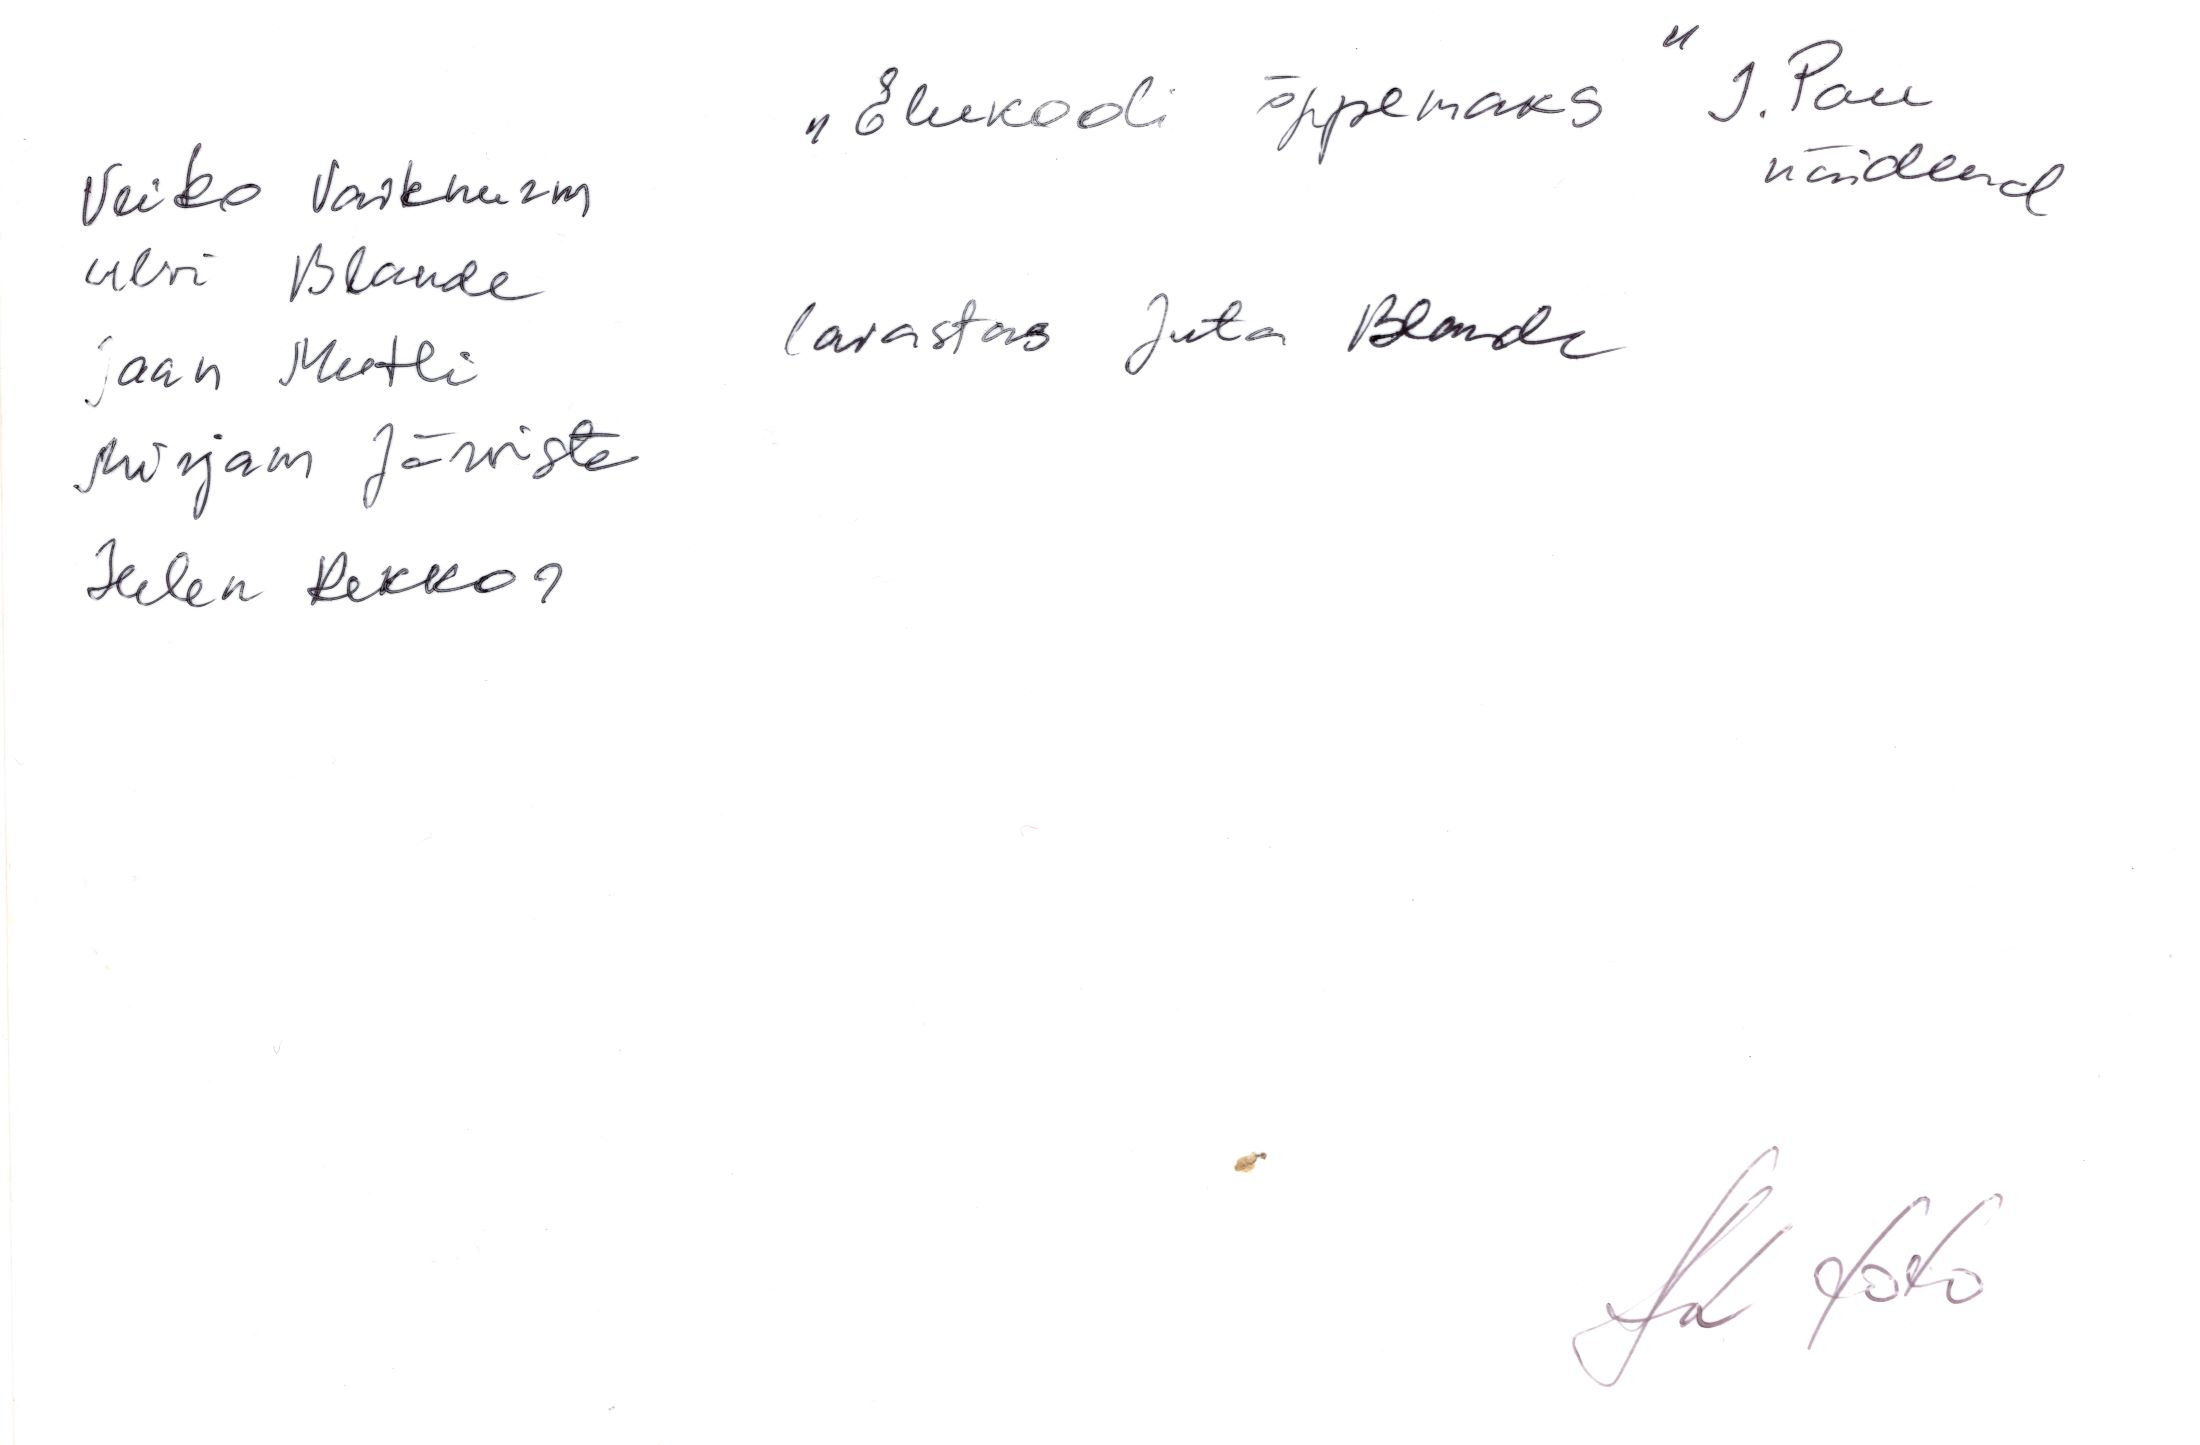 „Elukooli õppemaks“ J. Pau
näidend
Veiko Vaiknurm
Ulvi Blande
Jaan Mutli
Mirjam Järviste
Helen Rekkor
lavastas Juta Blande
foto